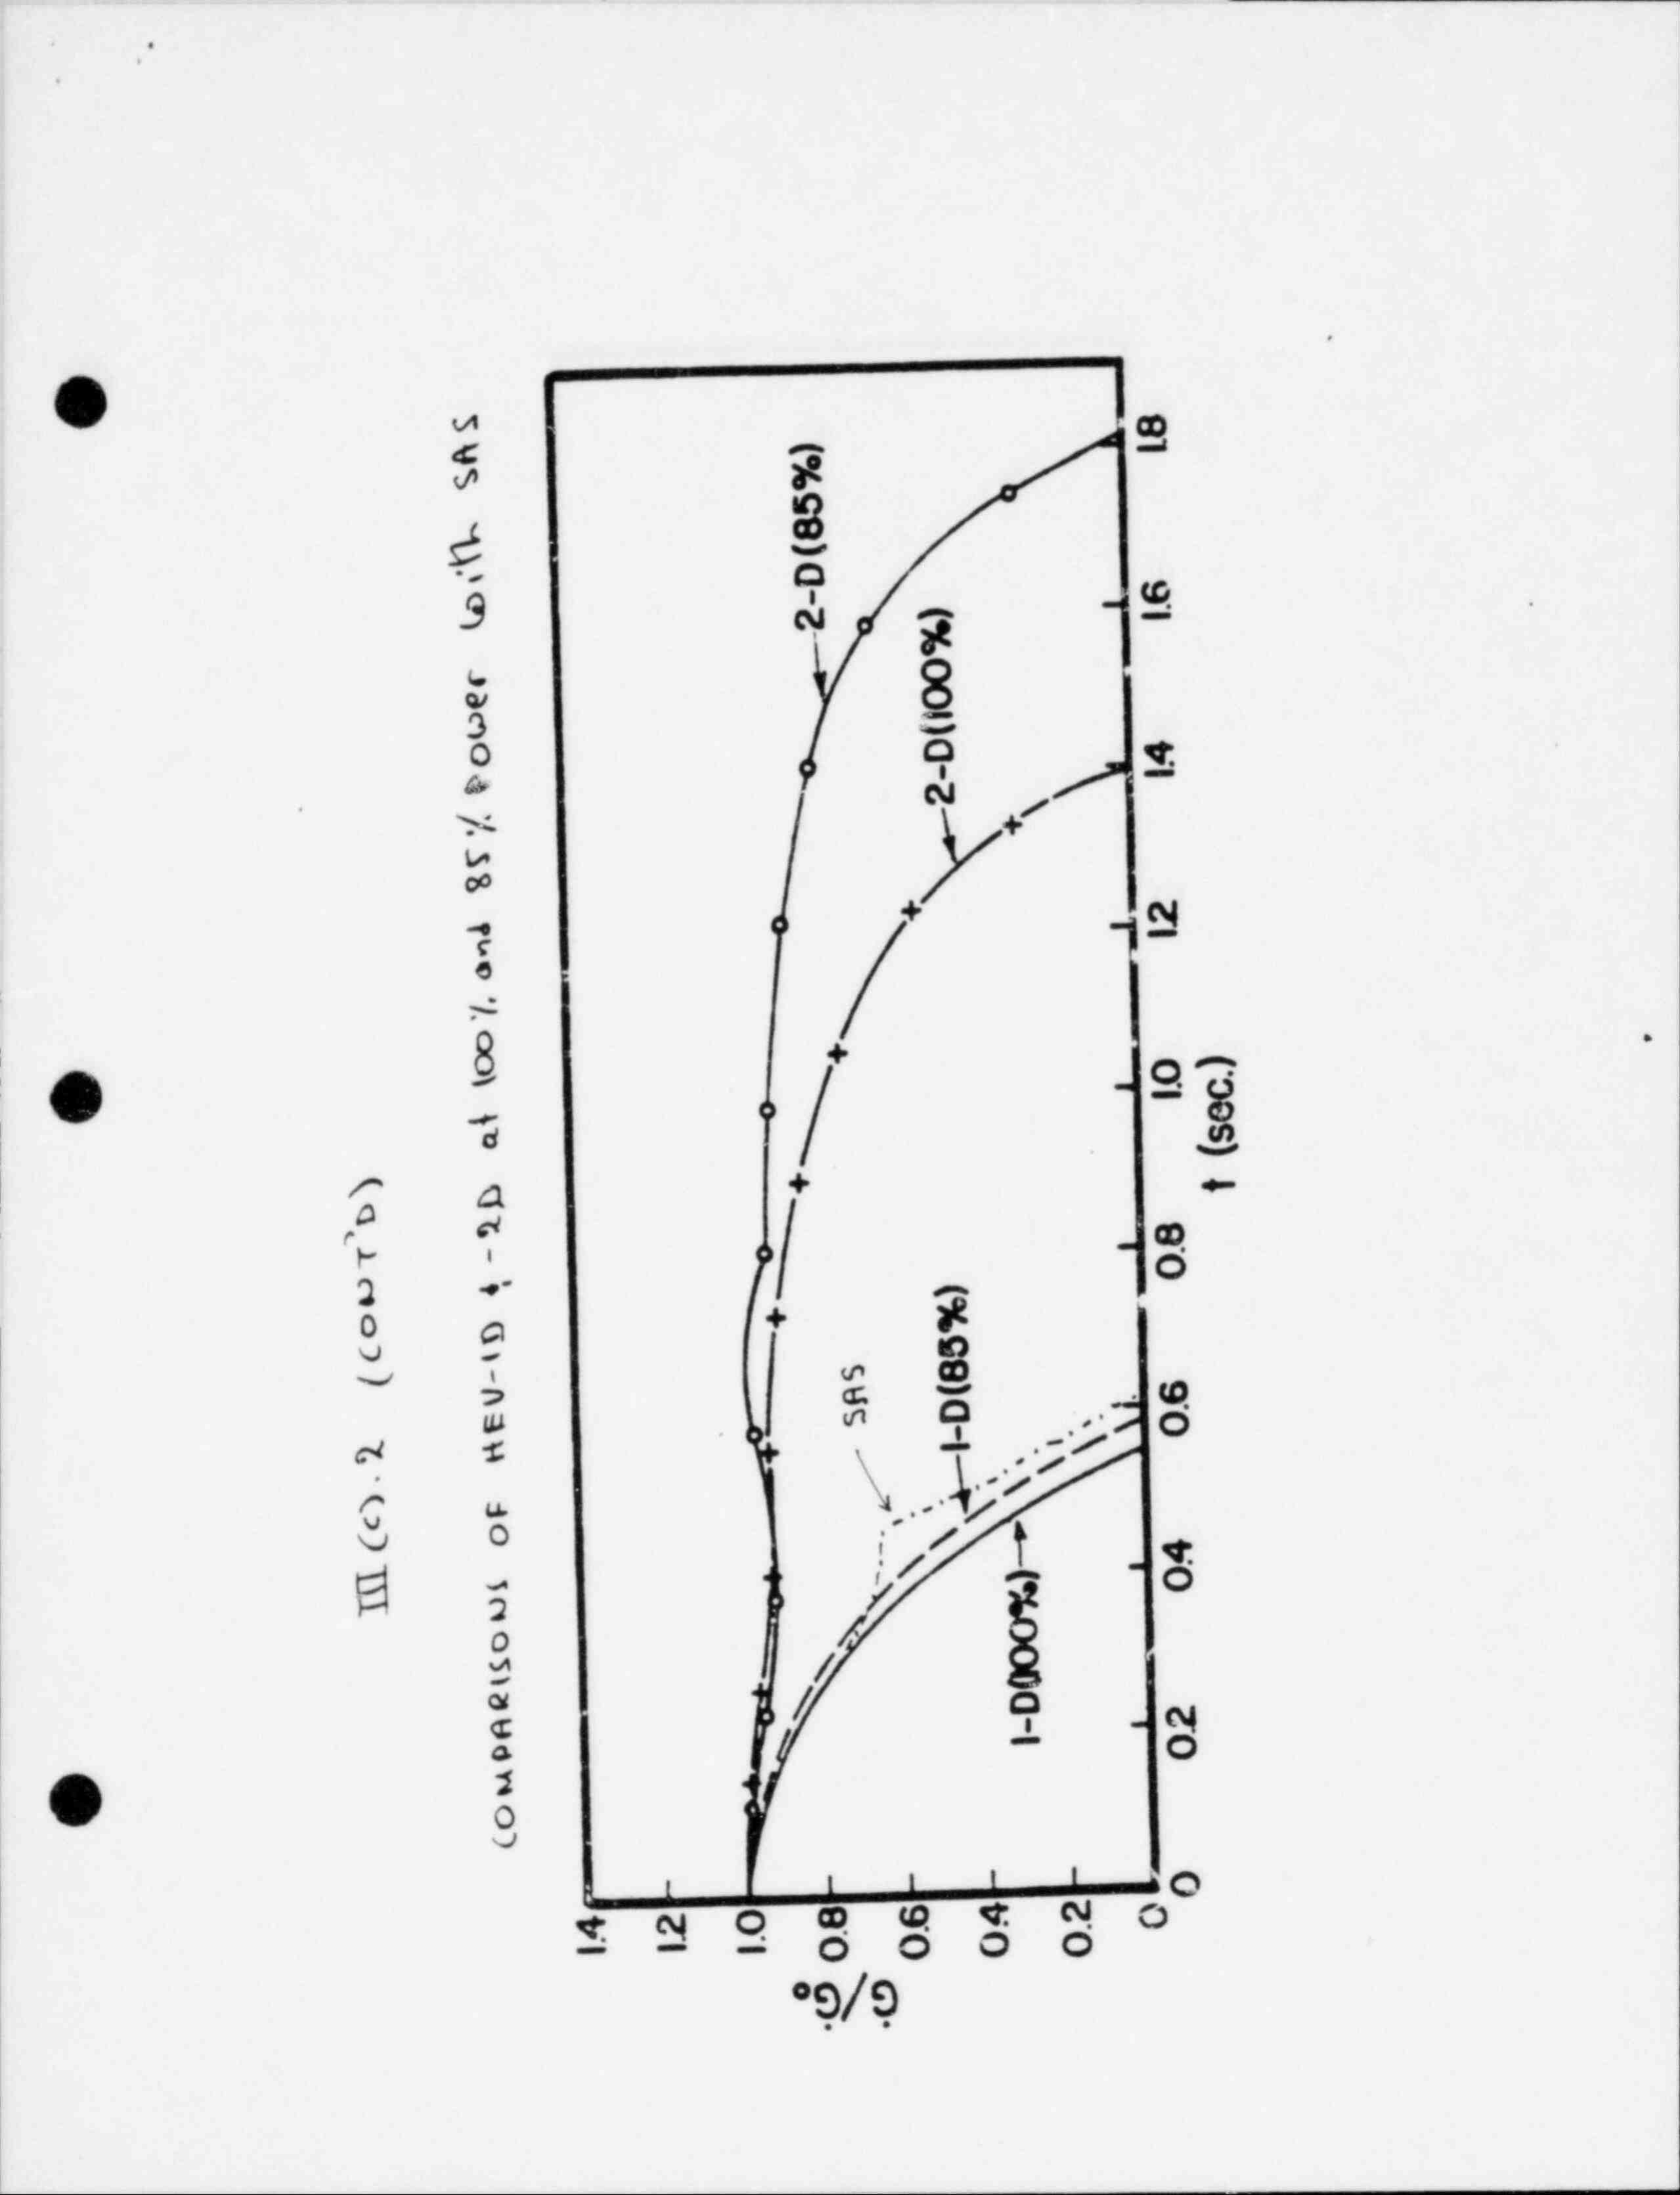 III (c).2 (CONT'D)
COMPARISONS OF HEV-1D & -2D at 100% and 85% Power with SAS
1.4
1.2
1.0
0.8
0.6
0.4
0.2
0
Ġ/Ġ°
2-D(85%)
2-D(100%)
SAS
1-D(85%)
1-D(100%)
0
0.2
0.4
0.6
0.8
1.0
1.2
1.4
1.6
1.8
t (sec.)